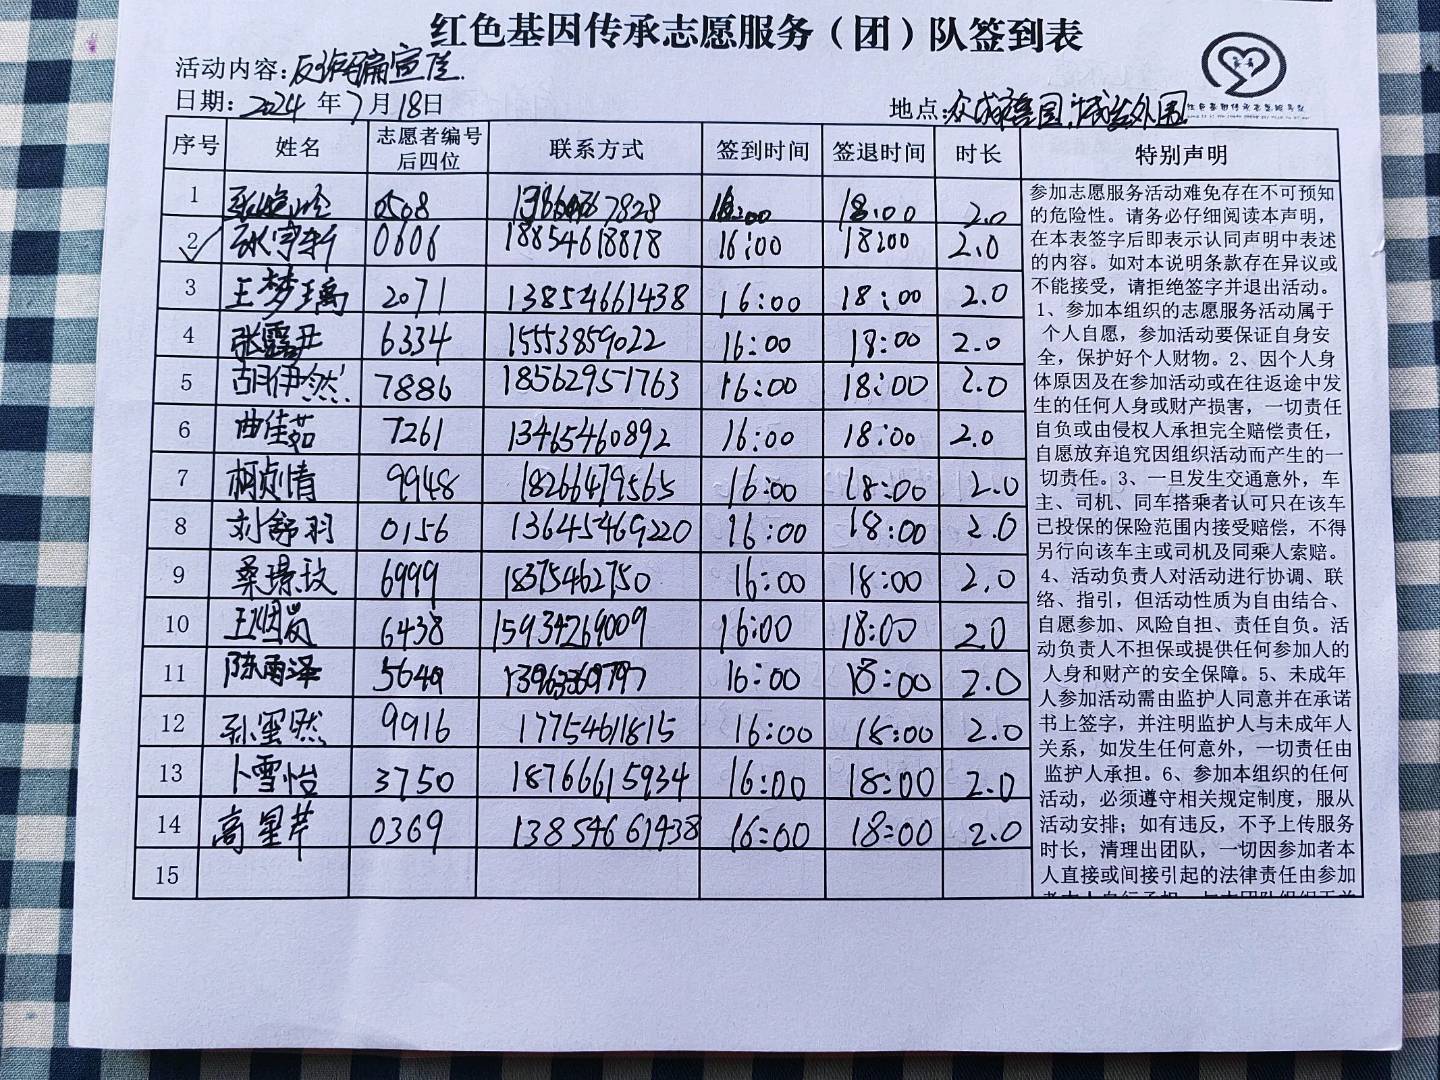 红色基因传承志愿服务（团）队签到表
活动内容：反诈骗宣传.
日期：2024 年 7 月 18 日
地点：
序号 姓名 志愿者编号后四位 联系方式 签到时间 签退时间 时长 特别声明
1 0508 18:00 2.0
2 0606 18854618878 16:00 18:00 2.0
3 王梦瑀 2071 13854661438 16:00 18:00 2.0
4 张露丹 6334 15553859022 16:00 18:00 2.0
5 胡伊然 7886 18562951763 16:00 18:00 2.0
6 曲佳茹 7261 13465460892 16:00 18:00 2.0
7 柯贞情 9948 18266479565 16:00 18:00 2.0
8 刘舒羽 0156 13645469220 16:00 18:00 2.0
9 桑璟玟 6999 18375462750 16:00 18:00 2.0
10 6438 15934269009 16:00 18:00 2.0
11 陈雨泽 5649 16:00 18:00 2.0
12 9916 17754611815 16:00 18:00 2.0
13 卜雪怡 3750 18766615934 16:00 18:00 2.0
14 高星芹 0369 13854661438 16:00 18:00 2.0
15
参加志愿服务活动难免存在不可预知
的危险性。请务必仔细阅读本声明，
在本表签字后即表示认同声明中表述
的内容。如对本说明条款存在异议或
不能接受，请拒绝签字并退出活动。
1、参加本组织的志愿服务活动属于
个人自愿，参加活动要保证自身安
全，保护好个人财物。2、因个人身
体原因及在参加活动或在往返途中发
生的任何人身或财产损害，一切责任
自负或由侵权人承担完全赔偿责任，
自愿放弃追究因组织活动而产生的一
切责任。3、一旦发生交通意外，车
主、司机、同车搭乘者认可只在该车
已投保的保险范围内接受赔偿，不得
另行向该车主或司机及同乘人索赔。
4、活动负责人对活动进行协调、联
络、指引，但活动性质为自由结合、
自愿参加、风险自担、责任自负。活
动负责人不担保或提供任何参加人的
人身和财产的安全保障。5、未成年
人参加活动需由监护人同意并在承诺
书上签字，并注明监护人与未成年人
关系，如发生任何意外，一切责任由
监护人承担。6、参加本组织的任何
活动，必须遵守相关规定制度，服从
活动安排；如有违反，不予上传服务
时长，清理出团队，一切因参加者本
人直接或间接引起的法律责任由参加